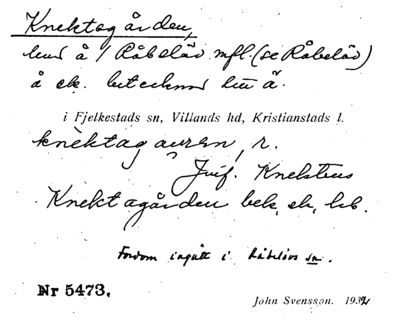 Knektagården,
hmd å 1 Råbelöv mfl. (se Råbelöv)
å ek. betecknad litt ä.
i Fjelkestads sn, Villands hd, Kristianstads l.
knèktag, r.
Jmf. Knektens
Knektagården bek, ek, kb.
Fordom ingått i Råbelövs sn.
Nr 5473.
John Svensson. 1932